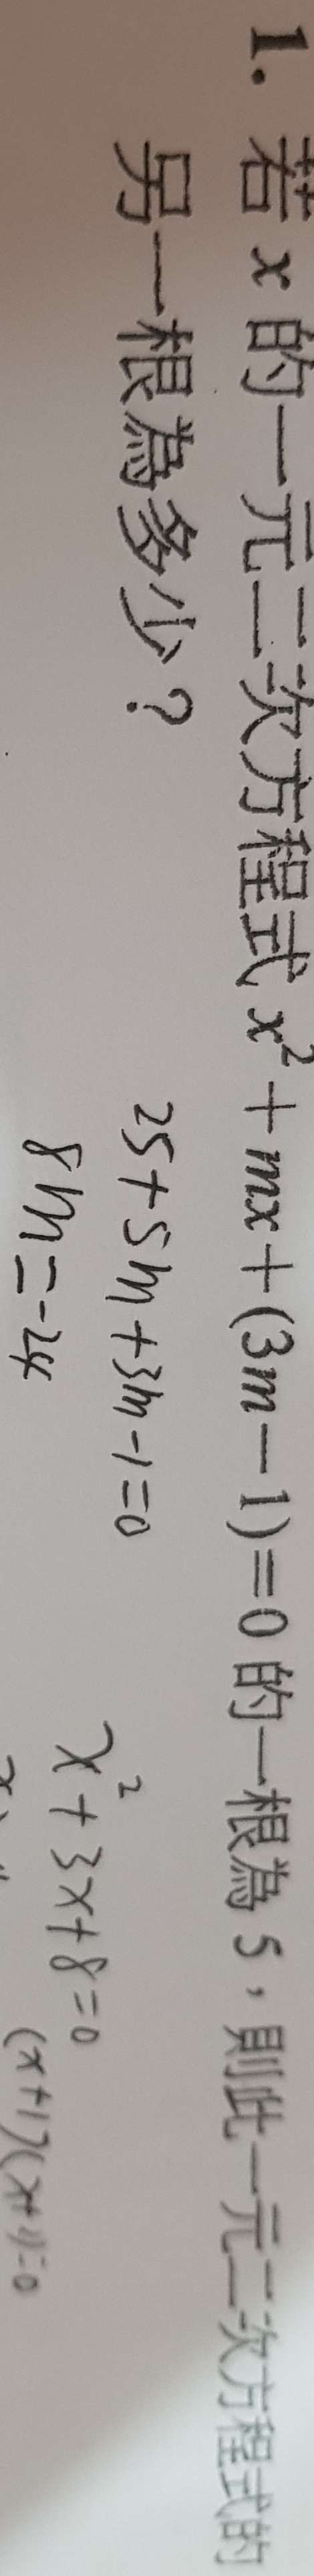 1. 若 x 的一元二次方程式 x²+mx+(3m-1)=0 的一根為 5，則此一元二次方程式的
另一根為多少？
25+5m+3m-1=0
8m=-24
x²+3x+8=0